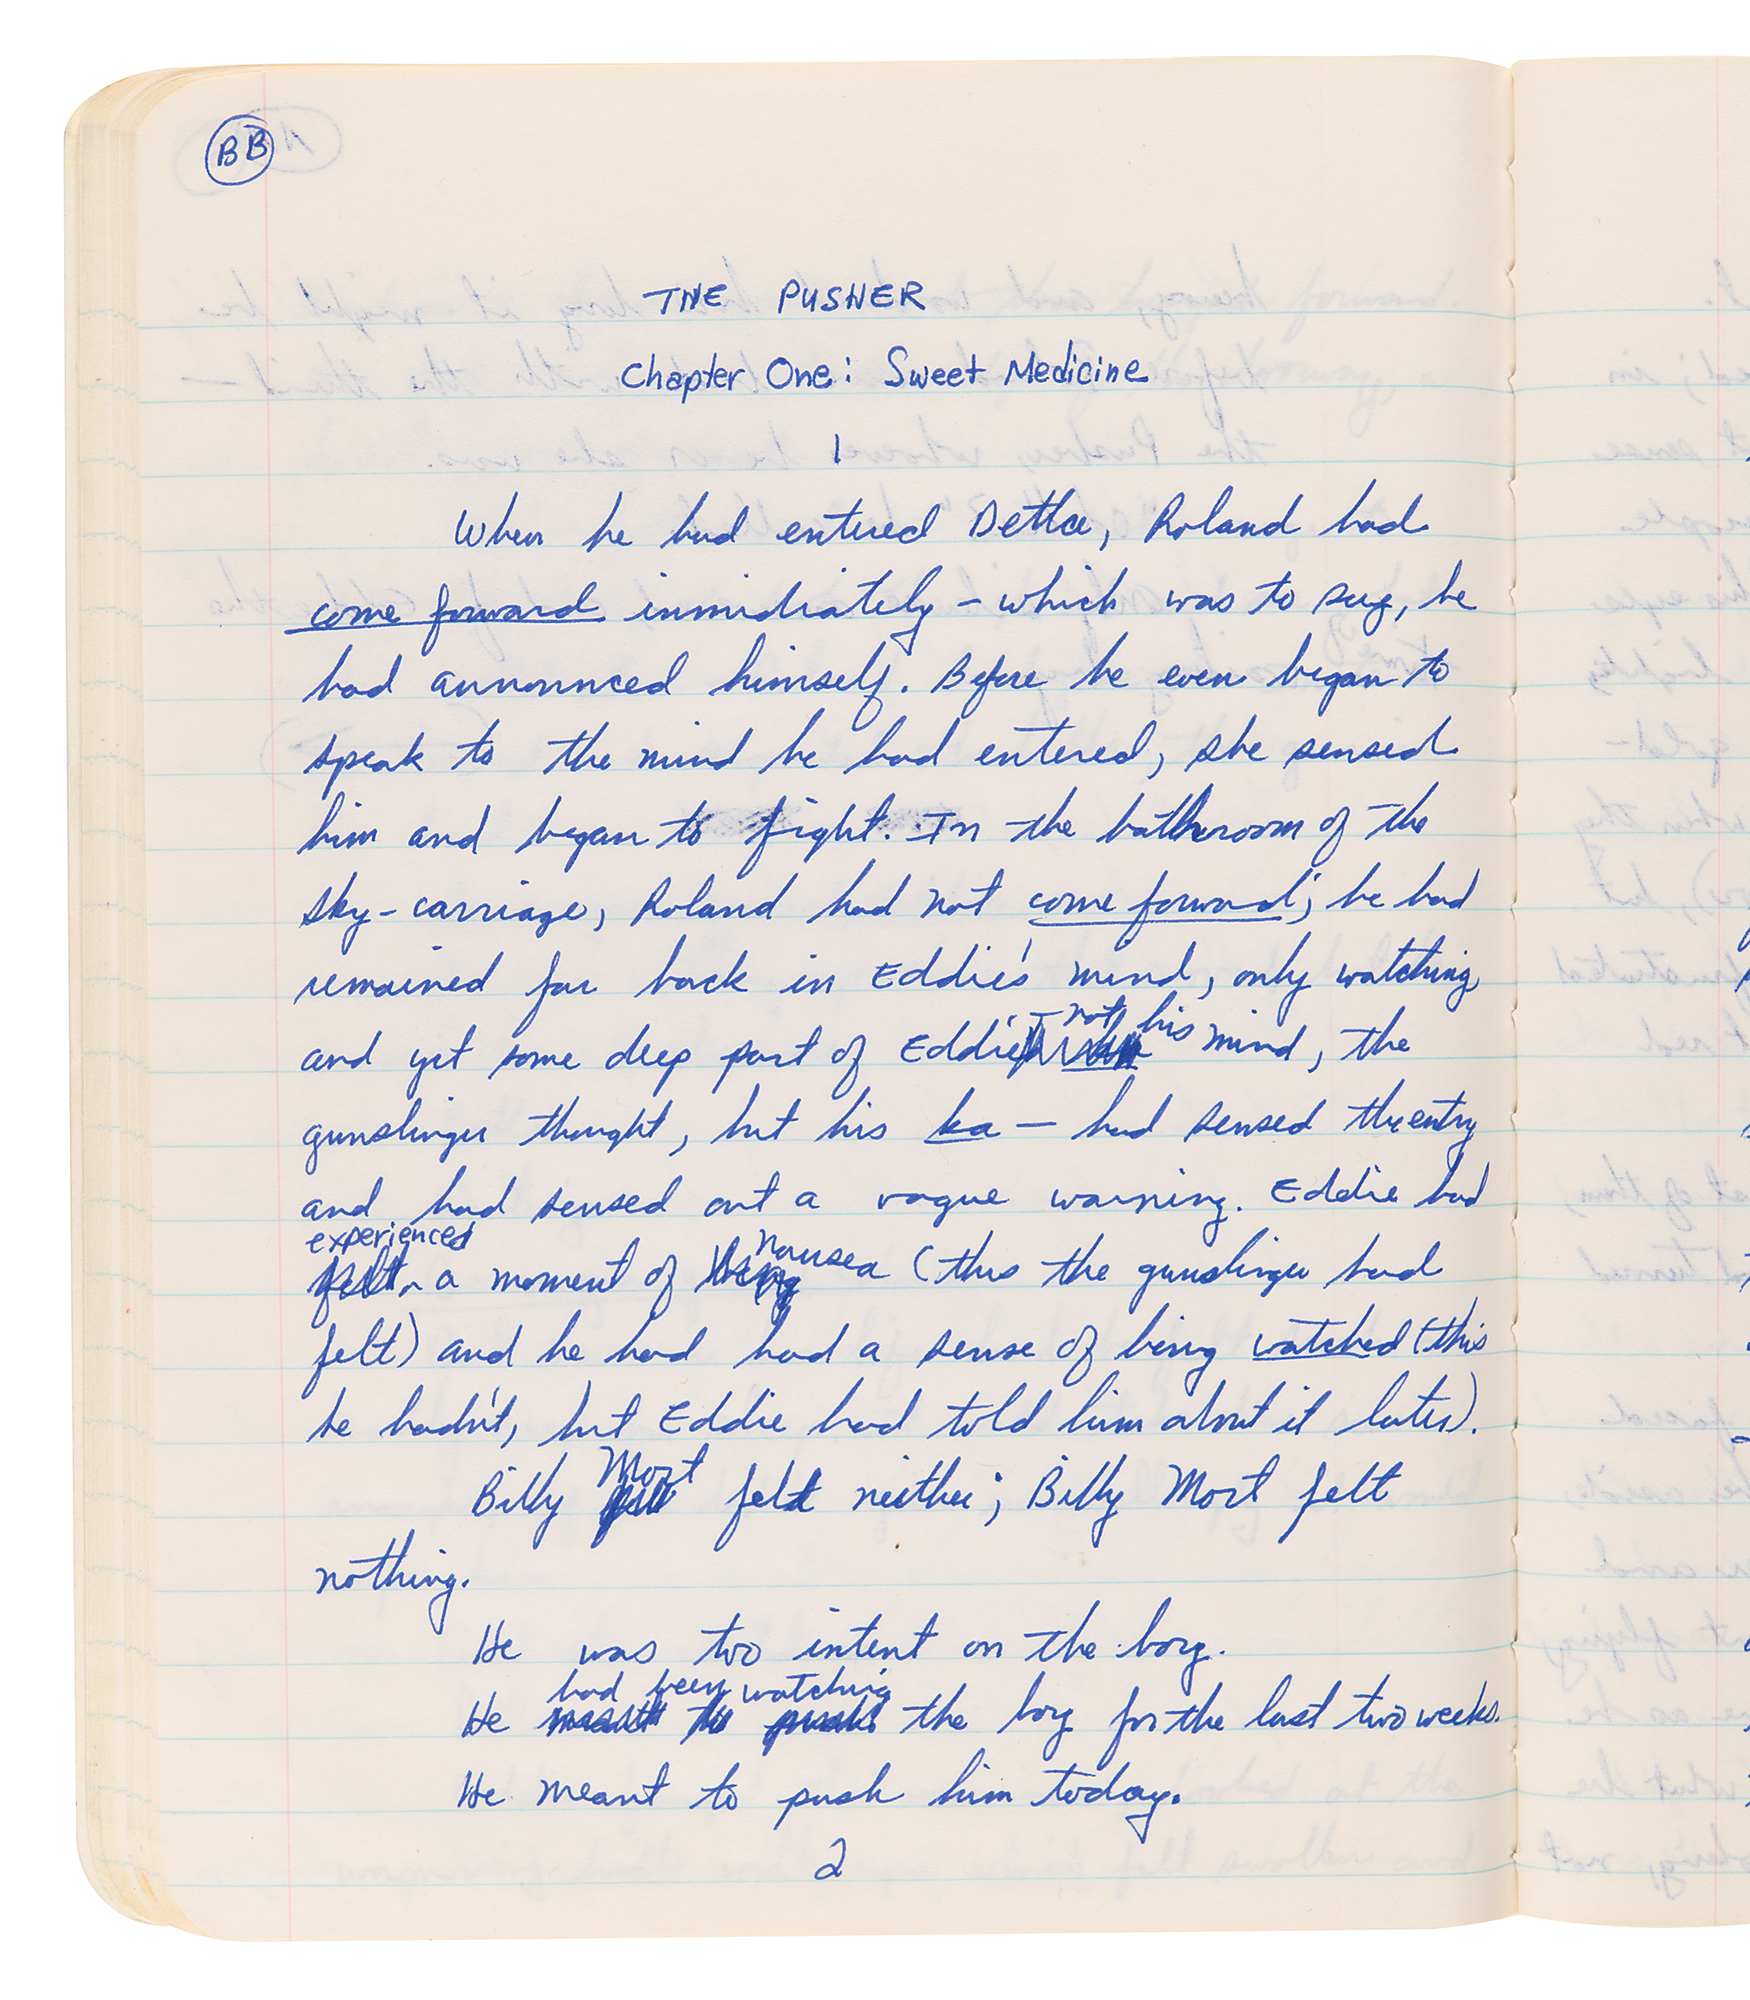 BB
THE PUSHER
Chapter One: Sweet Medicine
1
When he had entered Detta, Roland had
come forward immidiately – which was to say, he
had announced himself. Before he even began to
speak to the mind he had entered, she sensed
him and began to fight. In the bathroom of the
sky-carriage, Roland had not come forward; he had
remained far back in Eddie's mind, only watching
not his
and yet some deep part of Eddie mind, the
gunslinger thought, but his ka — had sensed the entry
and had sensed out a vague warning. Eddie had
experienced nausea
felt a moment of being (this the gunslinger had
felt) and he had had a sense of being watched (this
he hadn't, but Eddie had told him about it later).
Mort
Billy felt neither; Billy Mort felt
nothing.
He was two intent on the boy.
had been watching
He meant to push the boy for the last two weeks.
He meant to push him today.
2